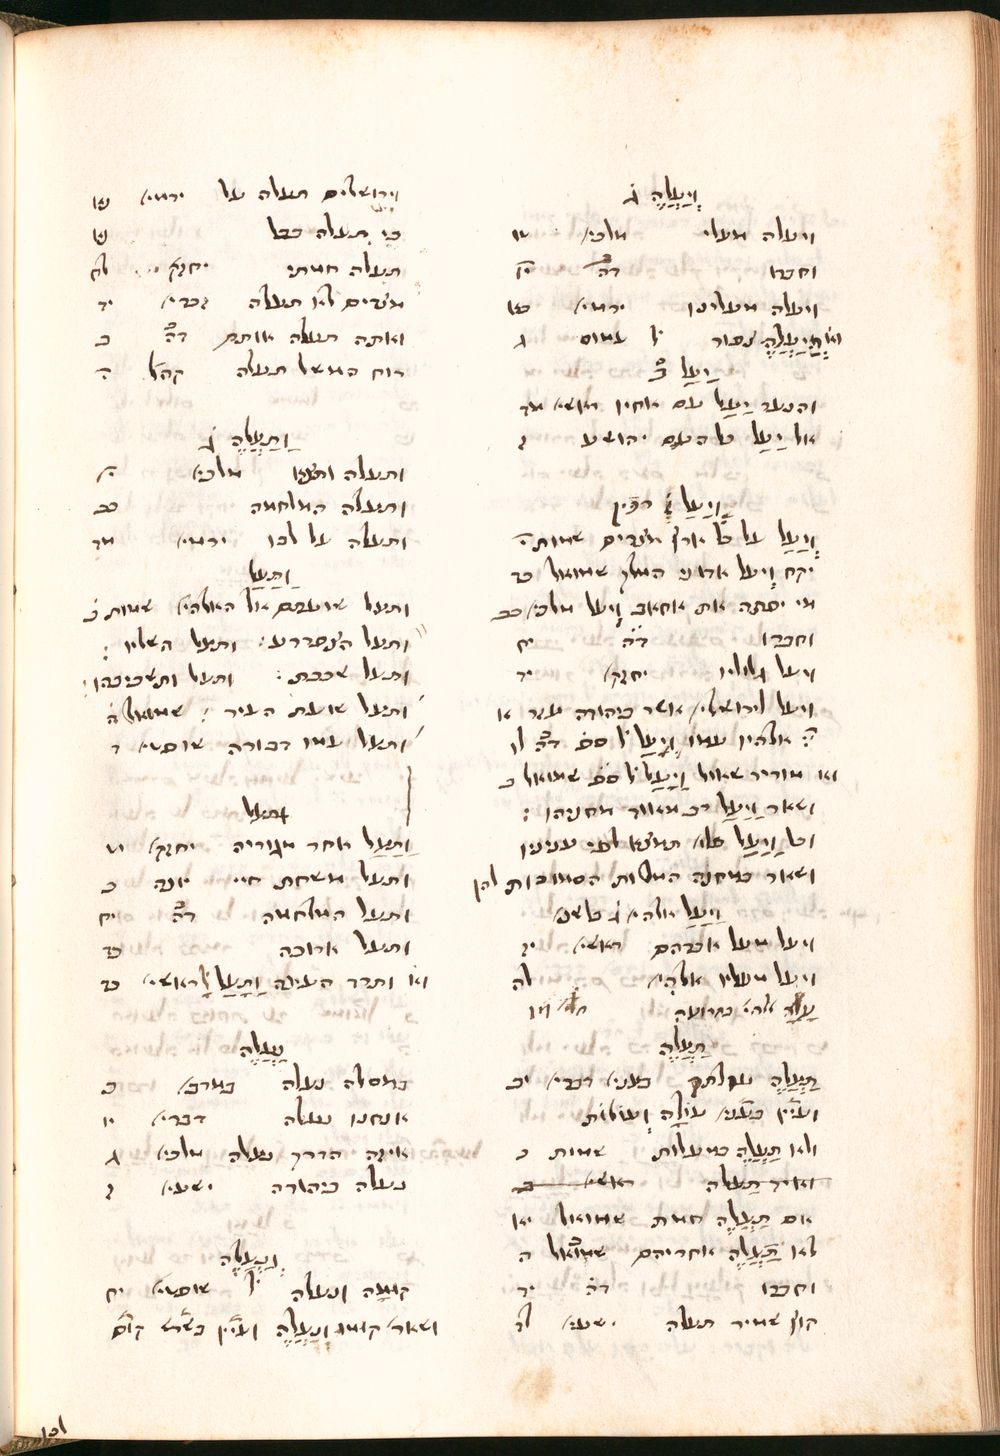 וְיַעֲלֶה ג
ויעלה מעלי מלכי׳ יו
וחברו דה׳ יו
ויעלה מעלינו ירמי׳ כא
וַיַעֲלֶה עמוס ג
יַעַל ב
והנער יַעַל עם אחיו ראשי׳ מד
אל יַעַל כל העם יהושע ז
וַיַעַל
וַיַעַל על כל ארץ מצרים שמות י
יקח וְיַעַל אדוני המלך שמואל כד
מי יפתה את אחאב וְיַעַל מלכי׳ כב
וחברו דה׳ יח
ויעל גלוליו יחזק׳ יד
ויעל לירושלי׳ אשר ביהודה עזר א
אלהיו עמו וְיָעַל ס״פ דה׳ לו
שאול וַיַעַל ס״פ שמואל ב
ושאר וַיַעַל רב מאוד
וכל וַיַעַל תמצא לפי עניינו
ושאר במחנה המלות הסמוכות להן
וַיַעַל אלהי׳ ג
ויעל מעל אברהם ראשי׳ יז
ויעל מעליו אלהי׳ לה
עָלָה אלהי׳ בתרועה
תַעֲלֶה
תַעֲלֶה
ועיין בענין עולָה ועולות
ולא תַעֲלֶה במעלות שמות כ
ואיד תעלה ראשי׳
אם תַעֲלֶה חמת שמואל יא
לא תַעֲלֶה אחריהם שמואל ה
וחברו דה׳ יד
קוץ שמיר תעלה ישעי׳ לד
וירושלים תעלה על ירמי׳
כי תעלה בבל
תעלה חמתי יחזק׳ לח
מצרים לא תעלה זכרי׳ יד
ואתה תעלה אותם דה׳ ב
רוח המושל תעלה קהל׳ י
וַתַעֲלֶה ג
ותעלה ותצא מלכי׳ י
ותעלה המלחמה כב
ותעלה על לבו ירמי׳ מד
וַתַעַל
ותעל שועתם אל האלהי׳ שמות ב
ותעל הצפרדע: ותעל השליו:
ותעל שכבת: ותעל ותשכיבהו
ותעל שועת העיר: שמואל ה
ותעל עמו דבורה שופטי׳ ד
וַתַעַל אחר מגוריה יחזק׳ יט
ותעל משחת חיי יונה ב
ותעל המלחמה דה׳ יח
ותעל ארוכה כד
ותרד העינה וַתָעַל ראשי׳ כד
נַעֲלֶה
במסלה נעלה במדב׳ כ
אנחנו נעלה דברי׳ א
איזה הדרך נעלה מלכי׳ ג
נעלה ביהודה ישעי׳ ז
וְנַעֲלֶה
קומה ונעלה שופטי׳ יח
ושאר׳ קומו וְנַעֲלֶה ועיין בשרש קום